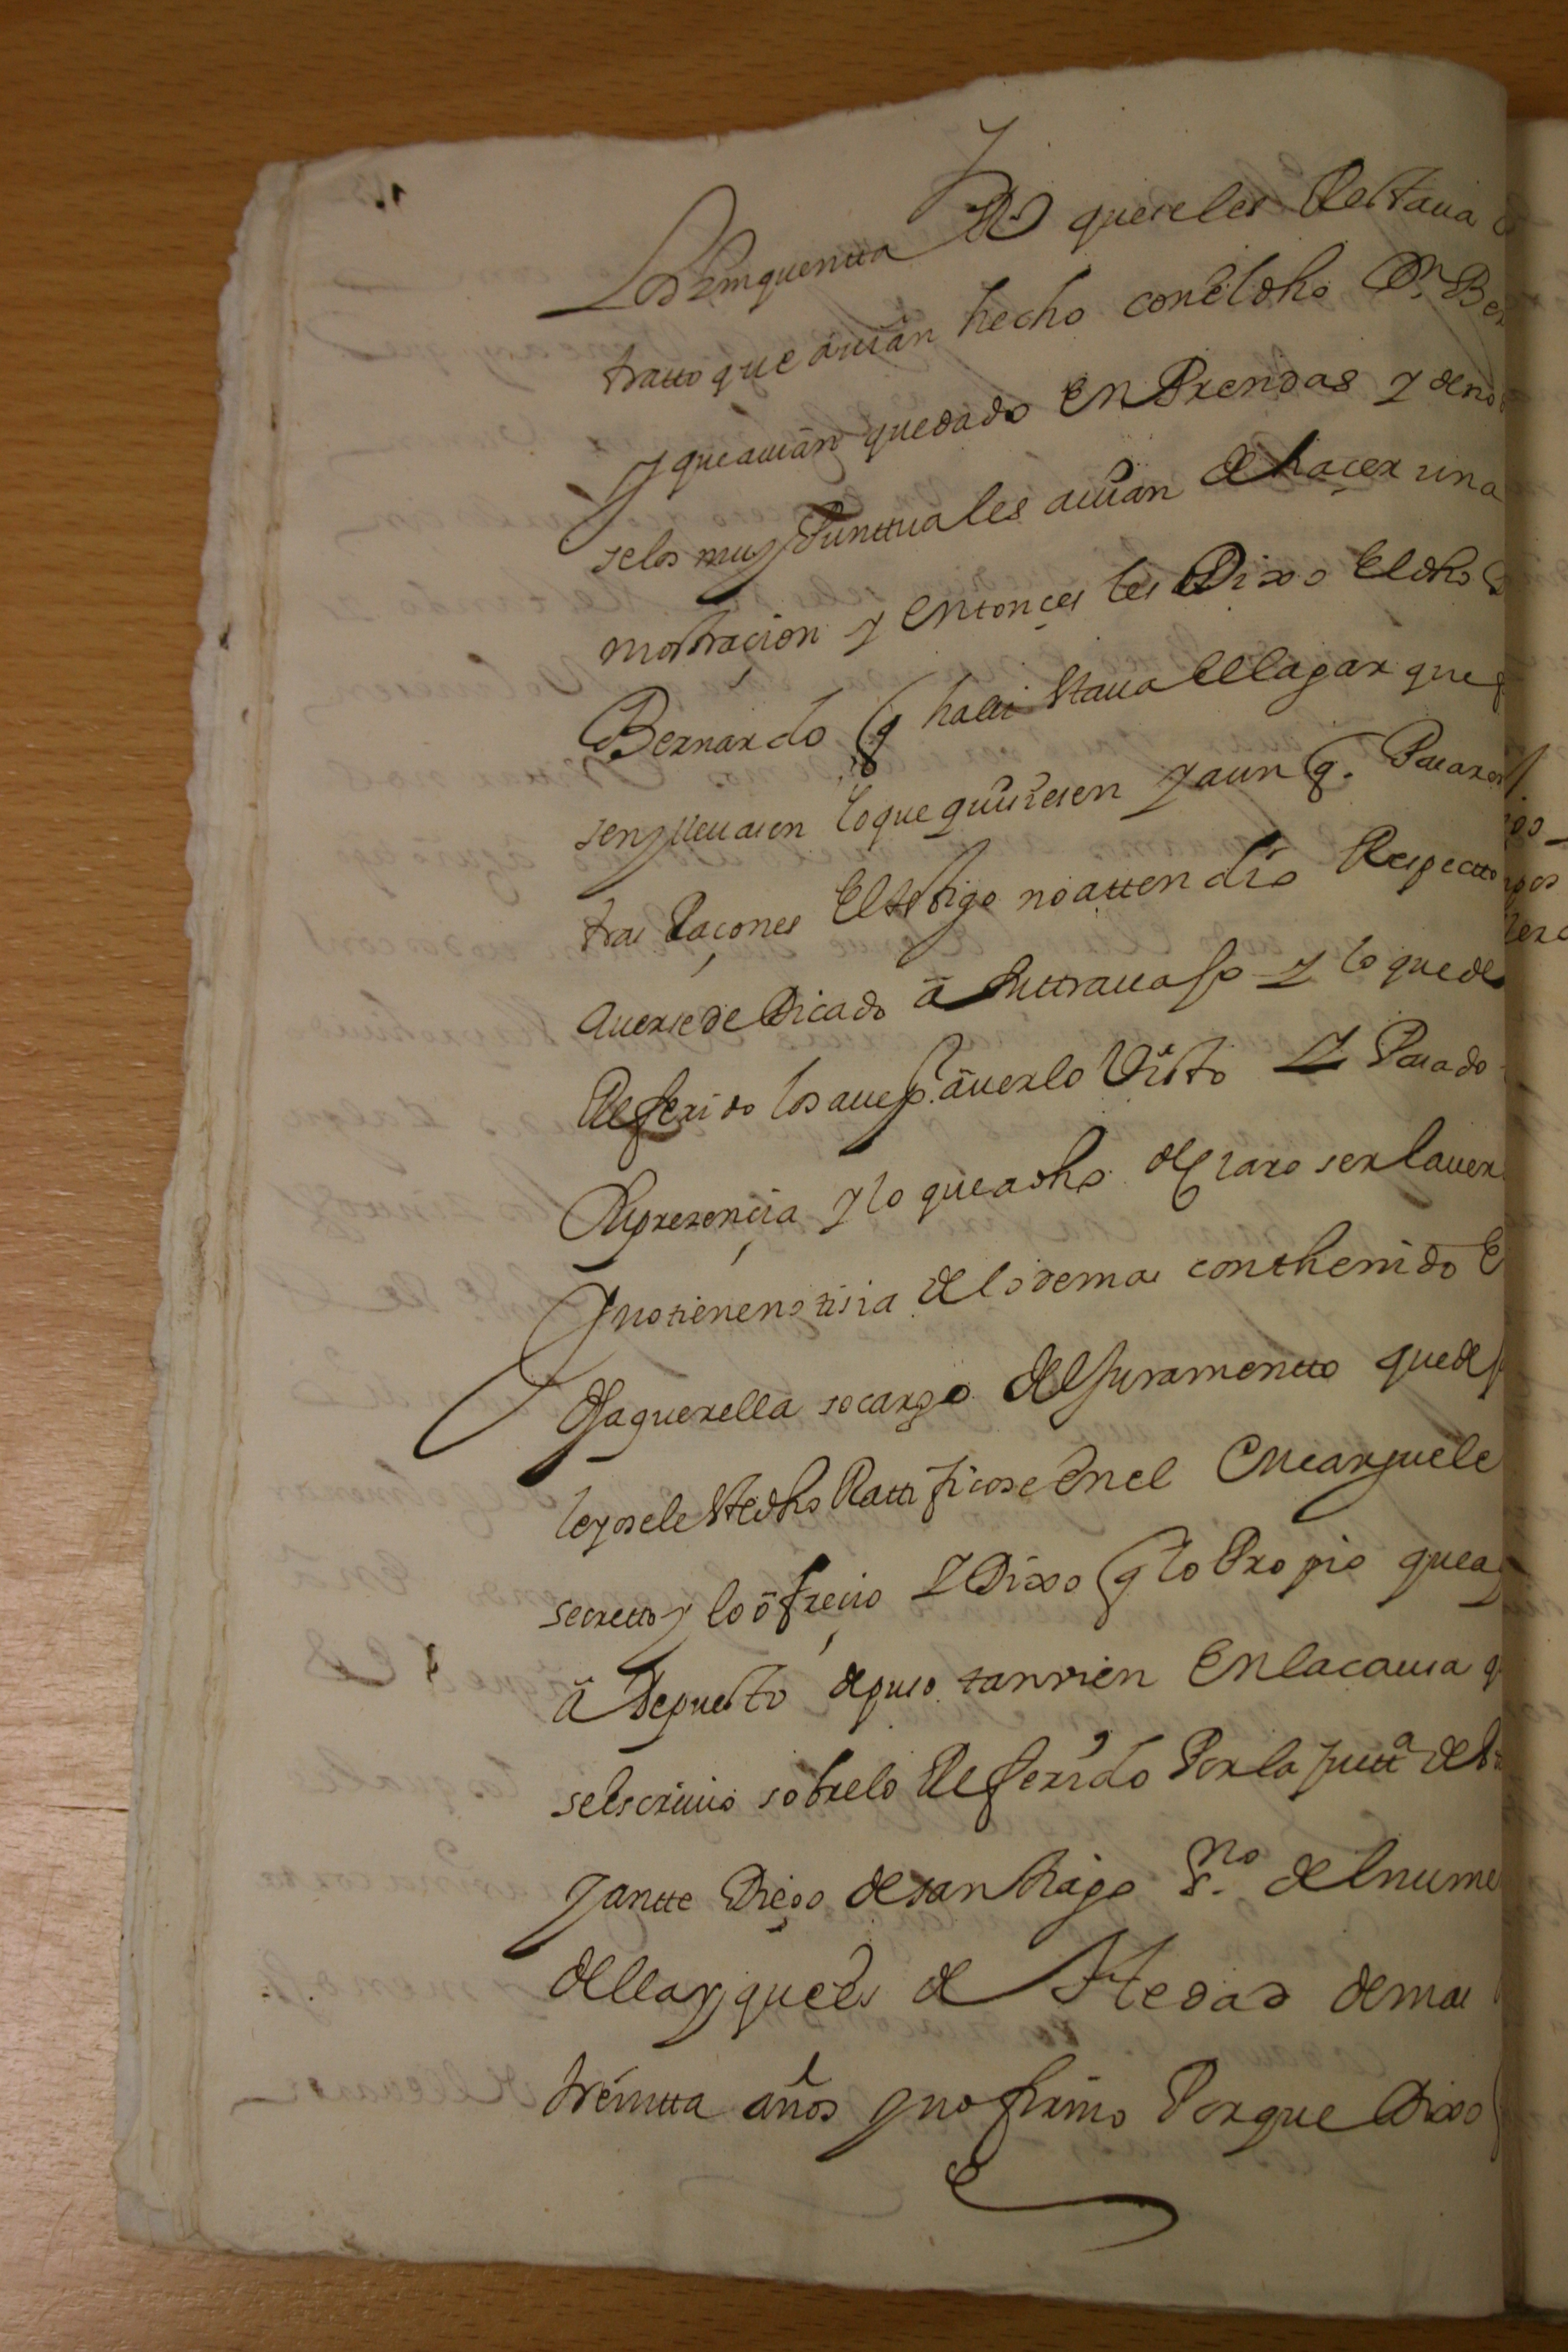 Los zinquentta Rs que se les Restaua
tratto que auian hecho con el dho Dn Ber
y que auian quedado en Prendas y de no
selos muy Punttuales auian de haçer una
mostraçion y entonçes les Dixo el dho
Bernardo q hallí staua el lagar que
sen y lleuasen lo que quisiesen y aun q. Pasaron
tras Raçones el testigo no attendió Respecto
auerse dedicado a su ttrauajo y lo que de
Referido lo saue p. auerlo Visto y Pasado
su presençia y lo que a dho declaro ser la uer
y no tiene notisia de lo demas conthenido e
dha querella so cargo del juramentto que de
leyosele ste dho Rattificose en el encarguele
secretto y lo ofreçio y Dixo q lo Propio que a
a depuesto depuso tanvien en la causa q
se escriuio sobre lo Referido Por la justta de
y antte Diego de santhiago sno del nume
della y que es de Hedad de mas
treintta años y no firmo Porque Dixo